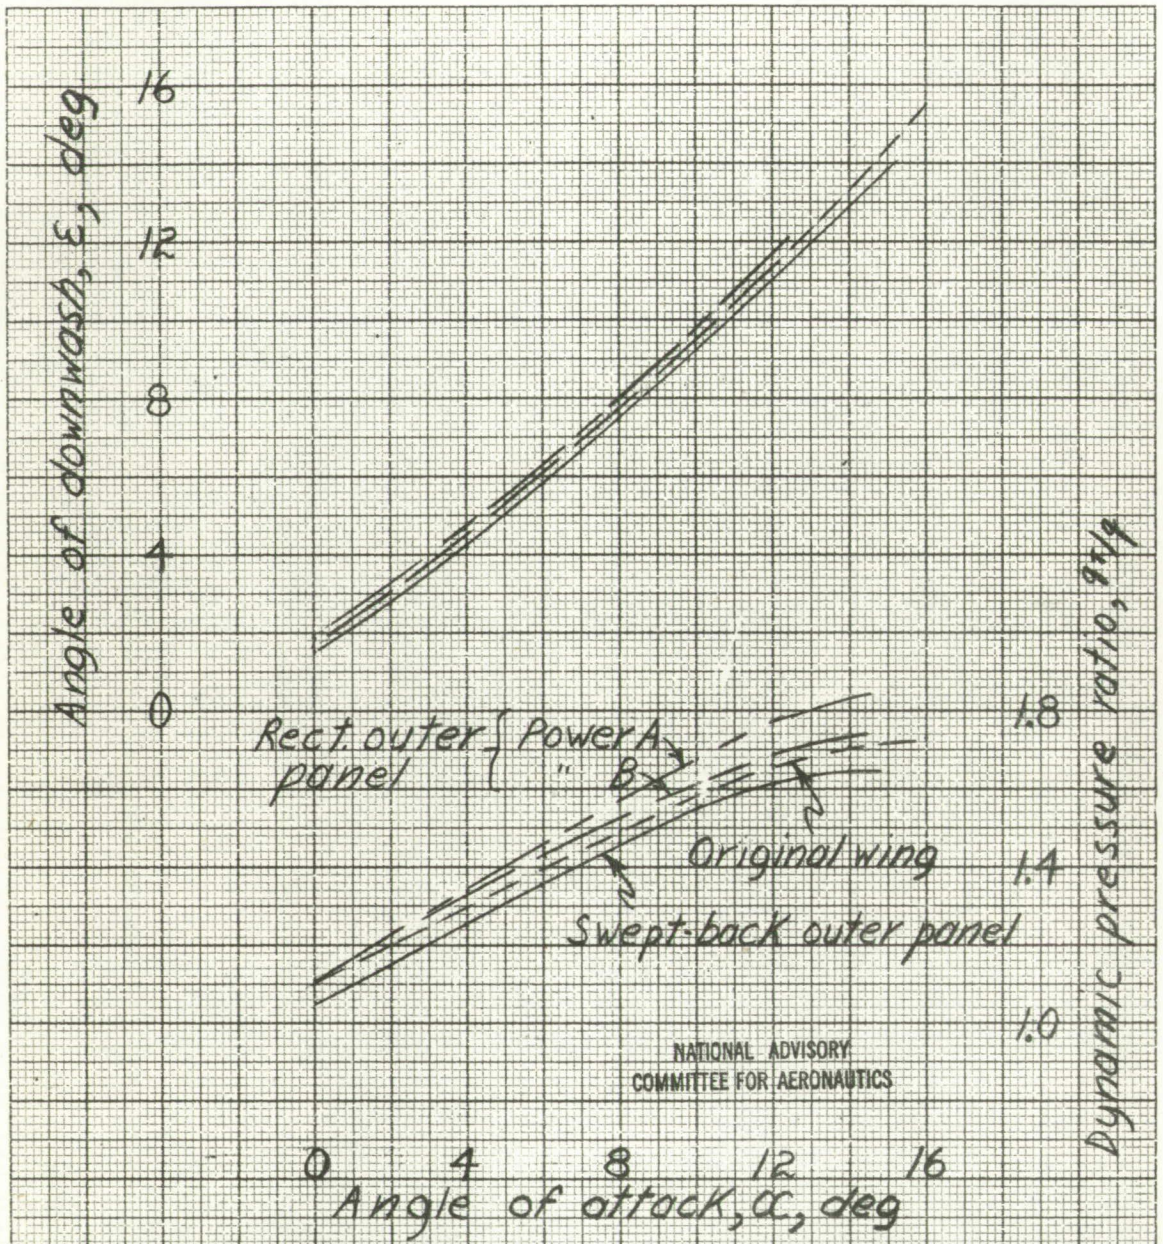 Angle of downwash, ε, deg
16
12
8
4
0
Rect. outer { Power A
panel " B
Original wing
Swept-back outer panel
1.8
1.4
1.0
Dynamic pressure ratio, qT/q
NATIONAL ADVISORY
COMMITTEE FOR AERONAUTICS
0 4 8 12 16
Angle of attack, α, deg